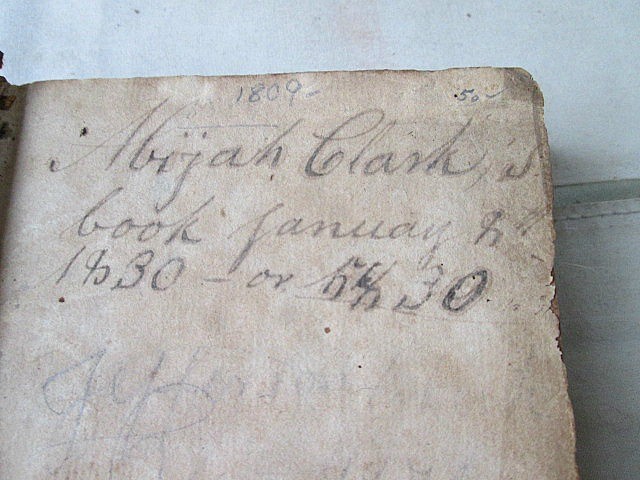 1809- 50
Abijah Clark,s
book January 8th
1830 - or 1830
Jefferson